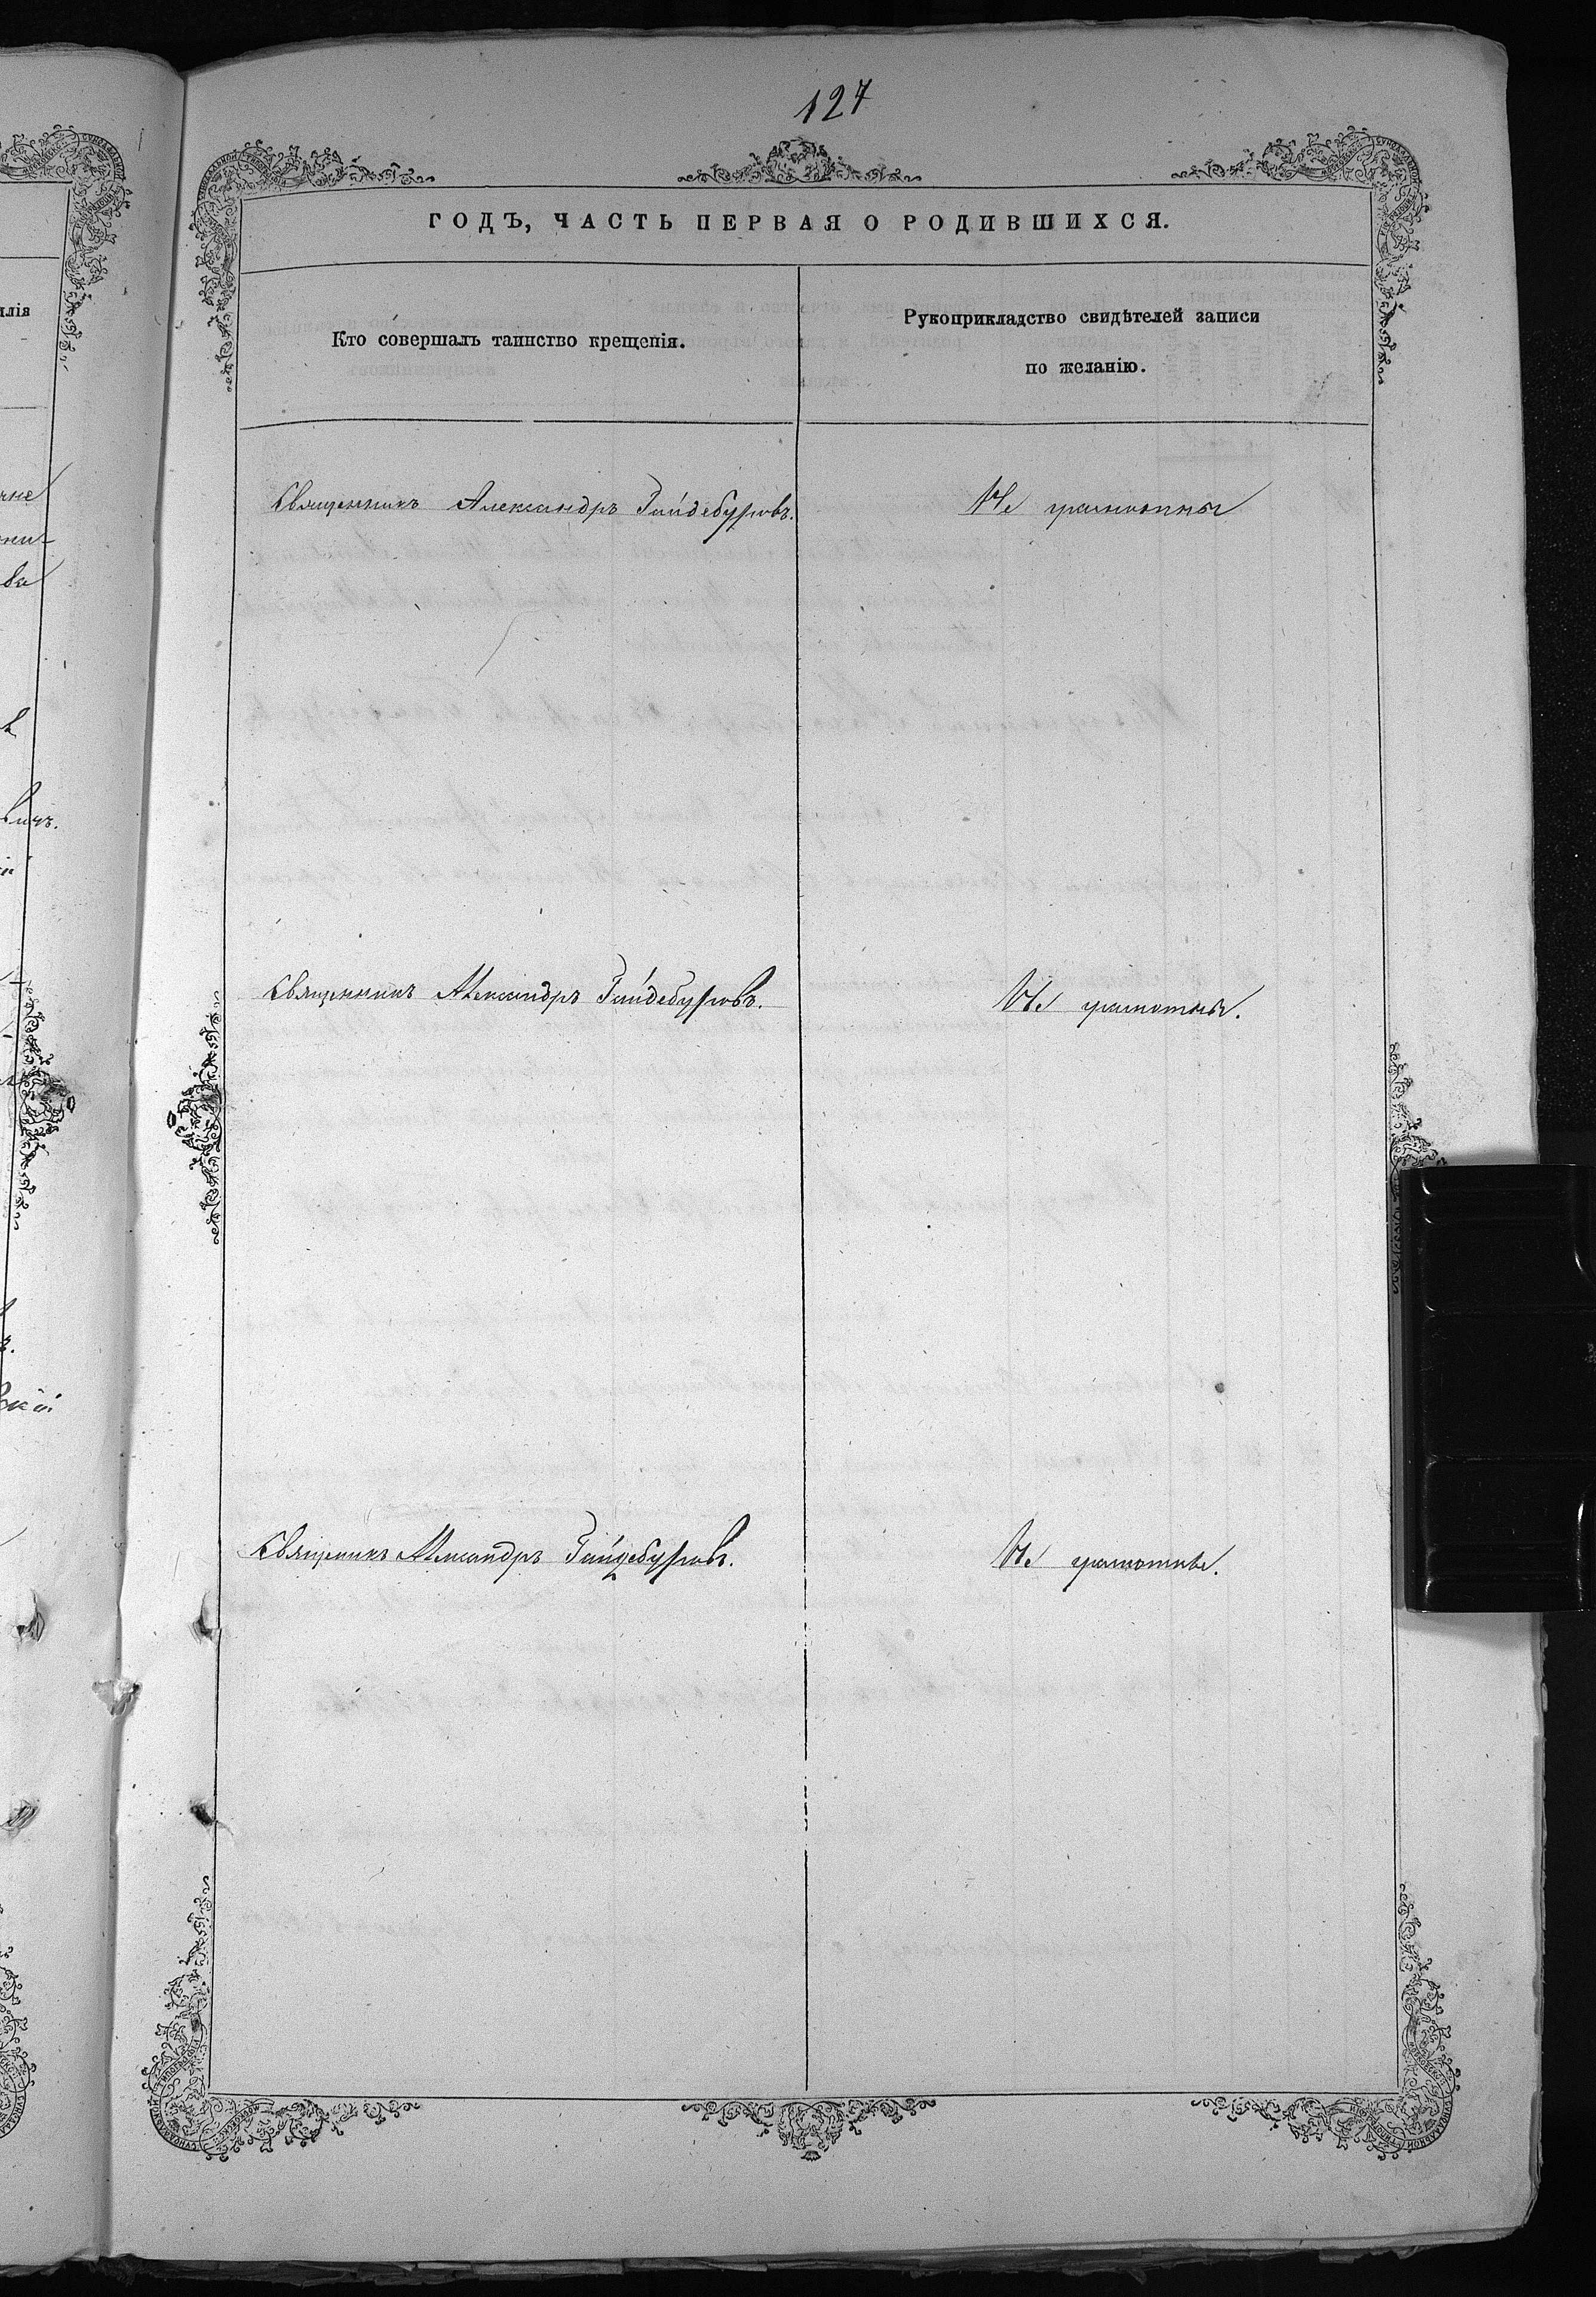 127
ГОДЪ, ЧАСТЬ ПЕРВАЯ О РОДИВШИХСЯ.
Кто совершалъ таинство крещенія.
Рукоприкладство свидѣтелей записи
по желанію.
Священникъ Александръ Гайдебуровъ.
Не грамотны
Священникъ Александръ Гайдебуровъ.
Не грамотны.
Священникъ Александръ Гайдебуровъ.
Не грамотные.